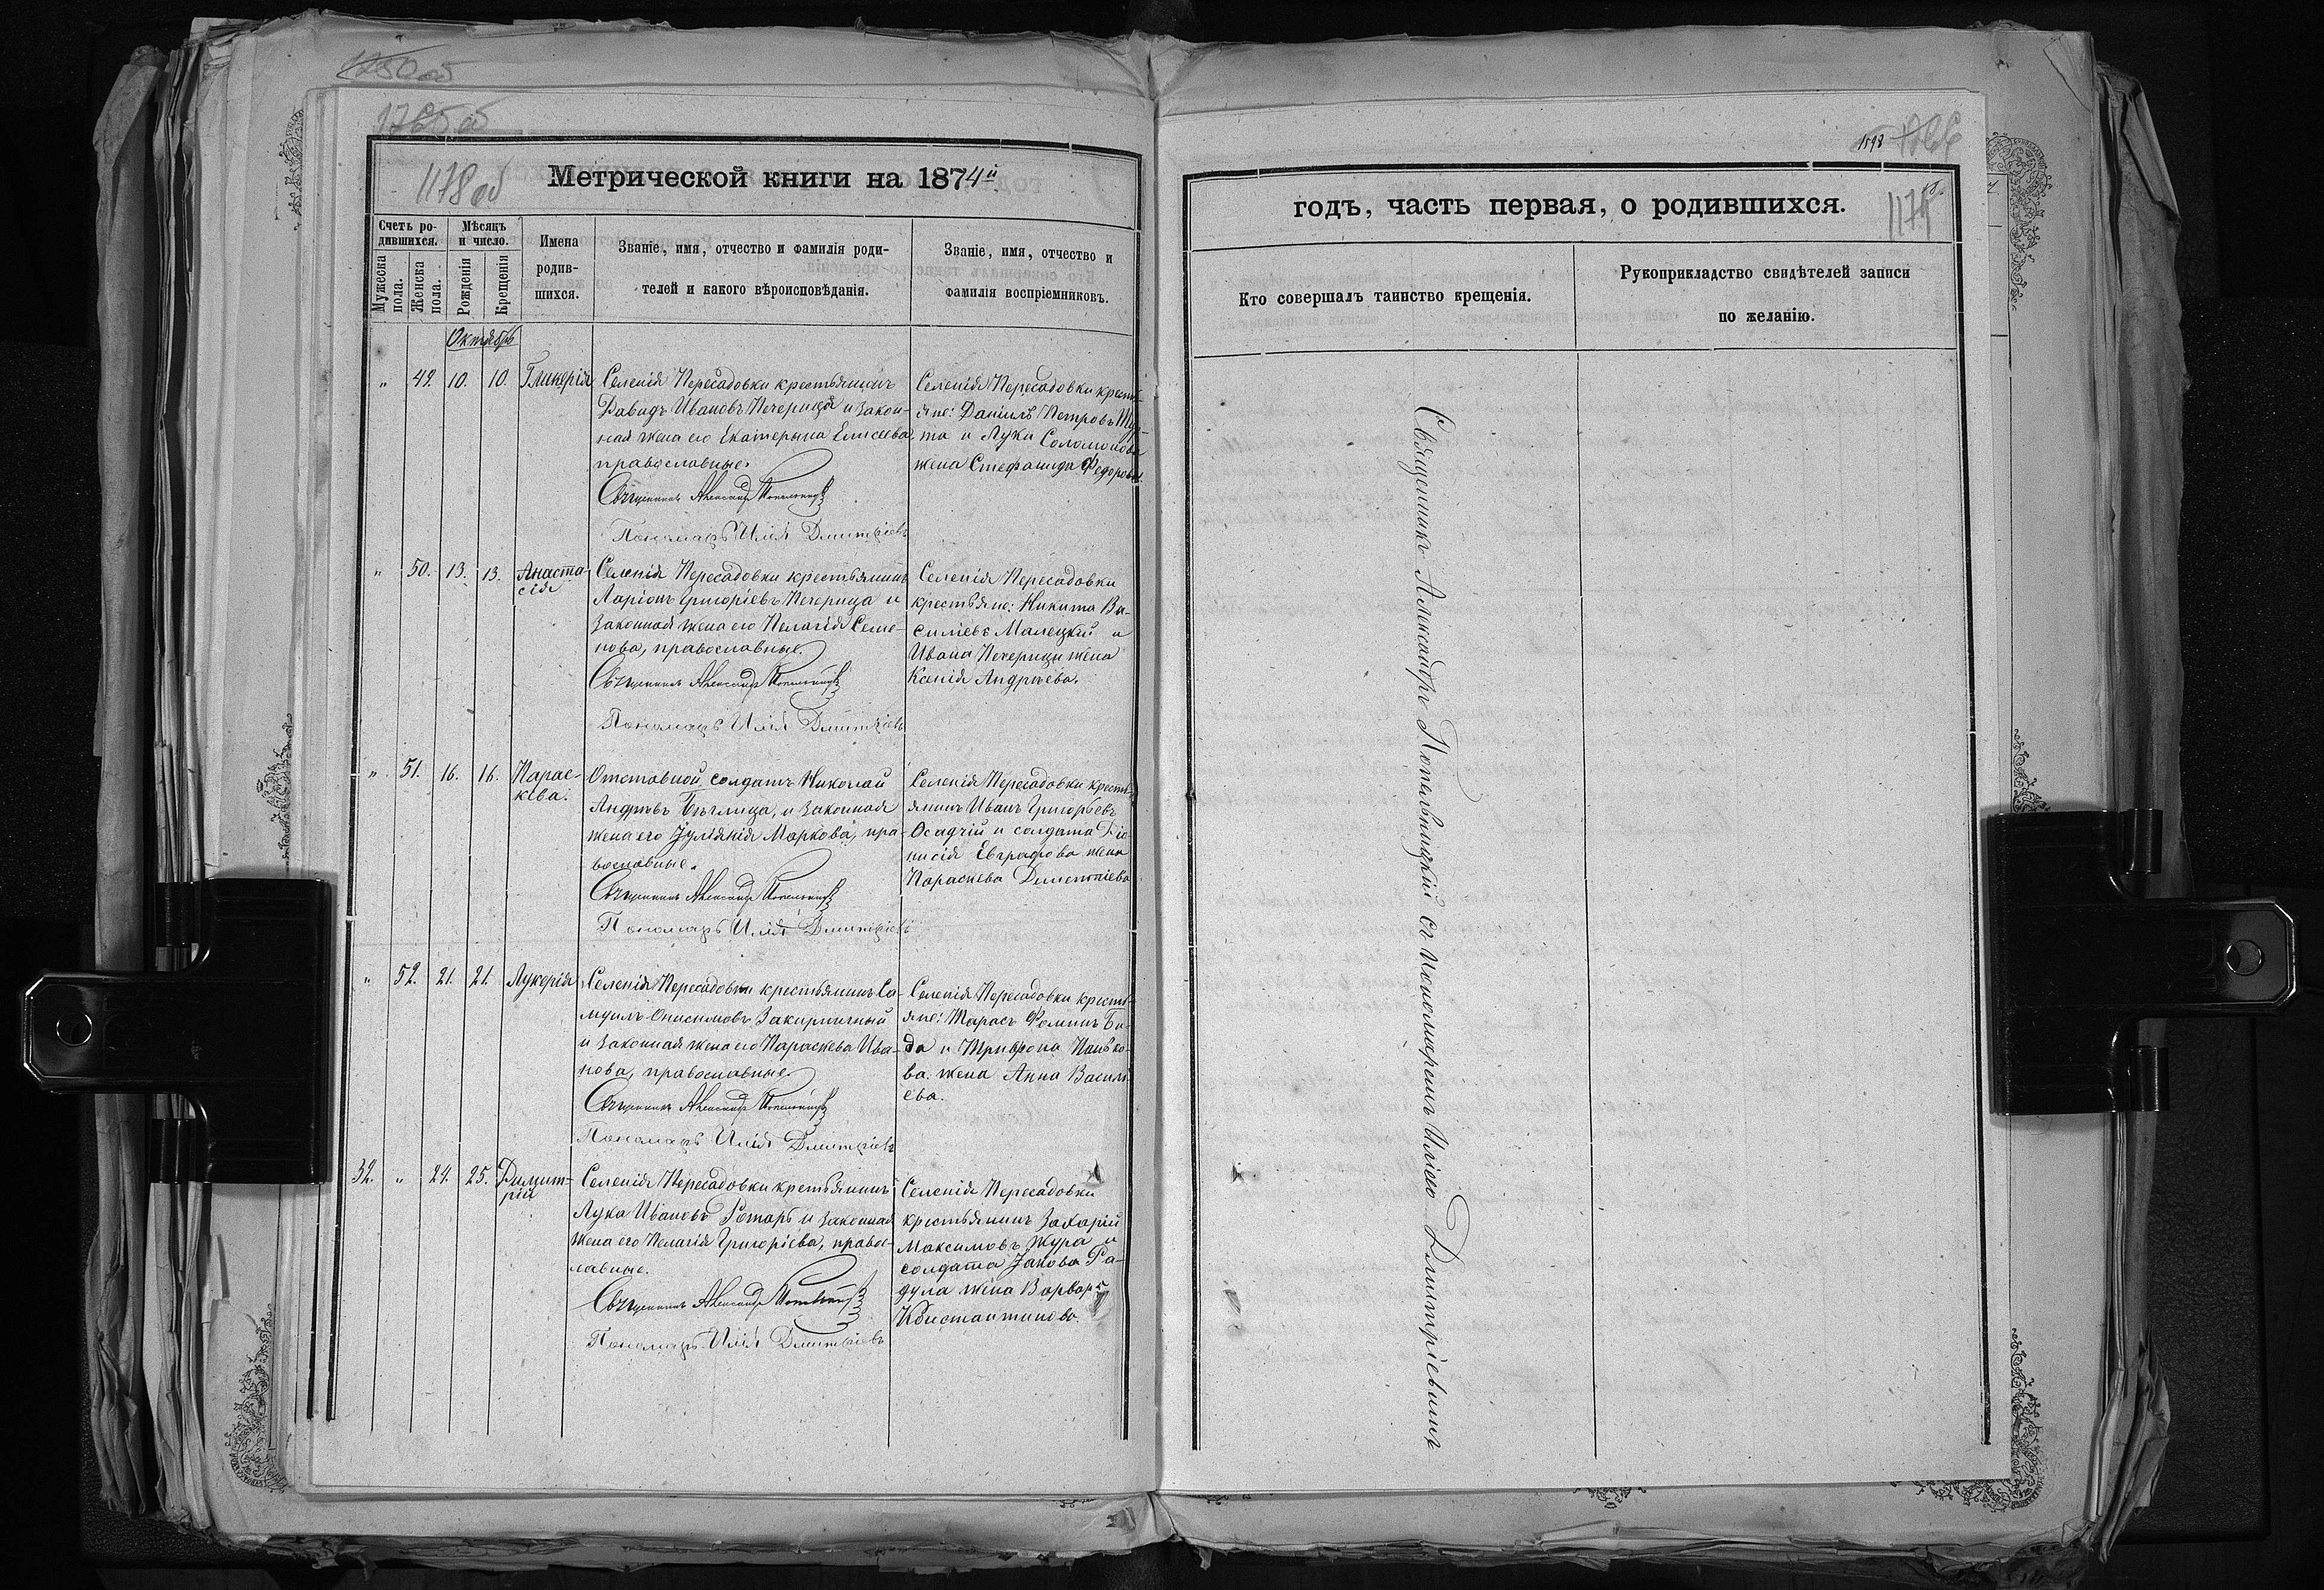 1765 об
1178 об
Метрической книги на 1874й
Счетъ ро-
дившихся.
Мужеска
пола.
Женска
пола.
Мѣсяцъ
и число.
Рожденія
Крещенія
Имена
родив-
шихся.
Званіе, имя, отчество и фамилія роди-
телей и какого вѣроисповѣданія.
Званіе, имя, отчество и
фамилія воспріемниковъ.
Октябрь
" 49. 10. 10. Гликерія
Селенія Пересадовки крестьянинъ
Давидъ Ивановъ Печерица и закон-
ная жена его Екатерына Елисеева
православные.
Священникъ Александръ Попельницкій
Пономарь Илія Дмитріевъ
Селенія Пересадовки кресть-
яне: Даніилъ Петровъ
та и Луки Соломонова
жена Стефанида Федорова.
" 50. 13. 13. Анаста-
сія
Селенія Пересадовки крестьянинъ
Ларіонъ Григоріевъ Печерица и
законная жена его Пелагія Семе-
нова, православные.
Священникъ Александръ Попельницкій
Пономарь Илія Дмитріевъ
Селенія Пересадовки
крестьяне: Никита Ва-
силіевъ Малецкій и
Ивана Печерицы жена
Ксенія Андріева.
" 51. 16. 16. Парас-
кева.
Отставной солдатъ Николай
Андріевъ Бѣглица, и законная
жена его Іуліянія Маркова, пра-
вославные.
Священникъ Александръ Попельницкій
Пономарь Илія Дмитріевъ
Селенія Пересадовки кресть-
янинъ Иванъ Григорьевъ
Осадчій и солдата Діо-
нисія Евграфова жена
Параскева Дементіева
" 52. 21. 21. Лукерія
Селенія Пересадовки крестьянинъ Са-
муилъ Онисимовъ Закирничный
и законная жена его Параскева Ива-
нова, православные.
Священникъ Александръ Попельницкій
Пономарь Илія Дмитріевъ
Селенія Пересадовки кресть-
яне: Тарасъ Фоминъ Би-
да и Трифона Панько-
ва жена Анна Василі-
ева.
32. " 24. 25. Димит-
рій
Селенія Пересадовки крестьянинъ
Лука Ивановъ Ротарь и законная
жена его Пелагія Григоріева, правос-
лавные.
Священникъ Александръ Попельницкій
Пономарь Илія Дмитріевъ
Селенія Пересадовки
крестьянинъ Захарій
Максимовъ Жура и
солдата Іакова Ра-
дула жена Варвара
Константинова.
1598
годъ, часть первая, о родившихся.
Кто совершалъ таинство крещенія.
Рукоприкладство свидѣтелей записи
по желанію.
Священникъ Александръ Попельницкій съ Пономаремъ Иліею Дмитріевымъ